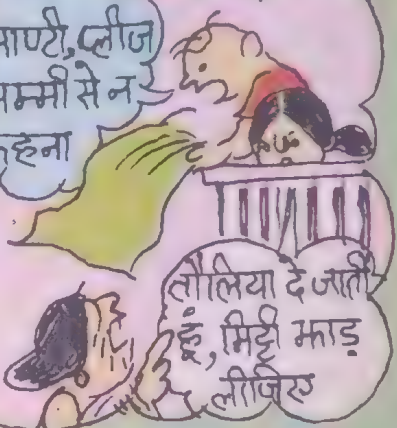 आण्टी, प्लीज
मम्मी से न
कहना
तौलिया दे जाती
हूं, मिट्टी झाड़
लीजिए